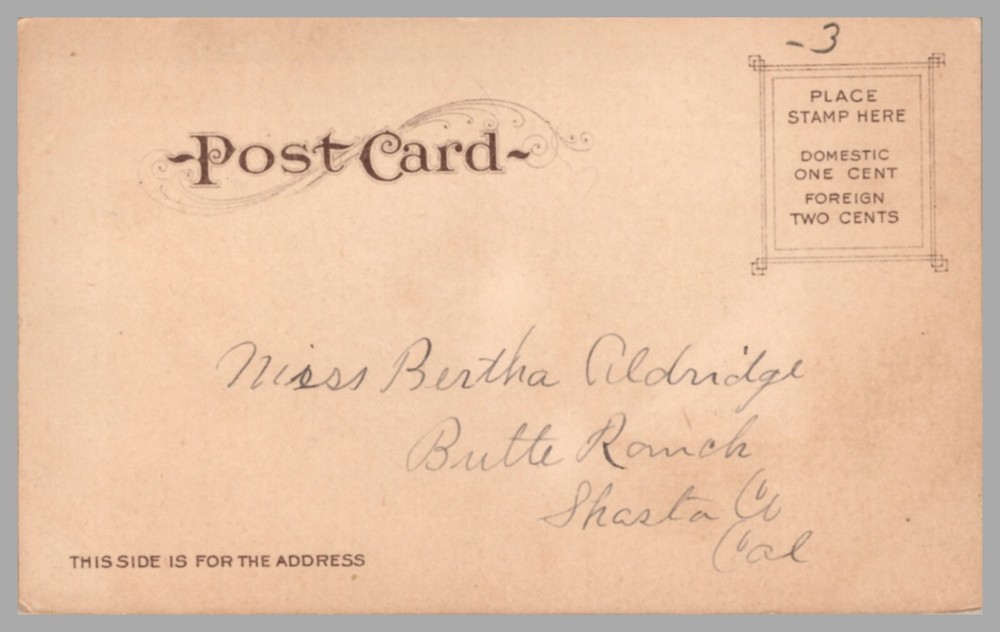 -3
PLACE
STAMP HERE
DOMESTIC
ONE CENT
FOREIGN
TWO CENTS
~Post Card~
Miss Bertha Aldridge
Butte Ranch
Shasta Co
Cal
THIS SIDE IS FOR THE ADDRESS